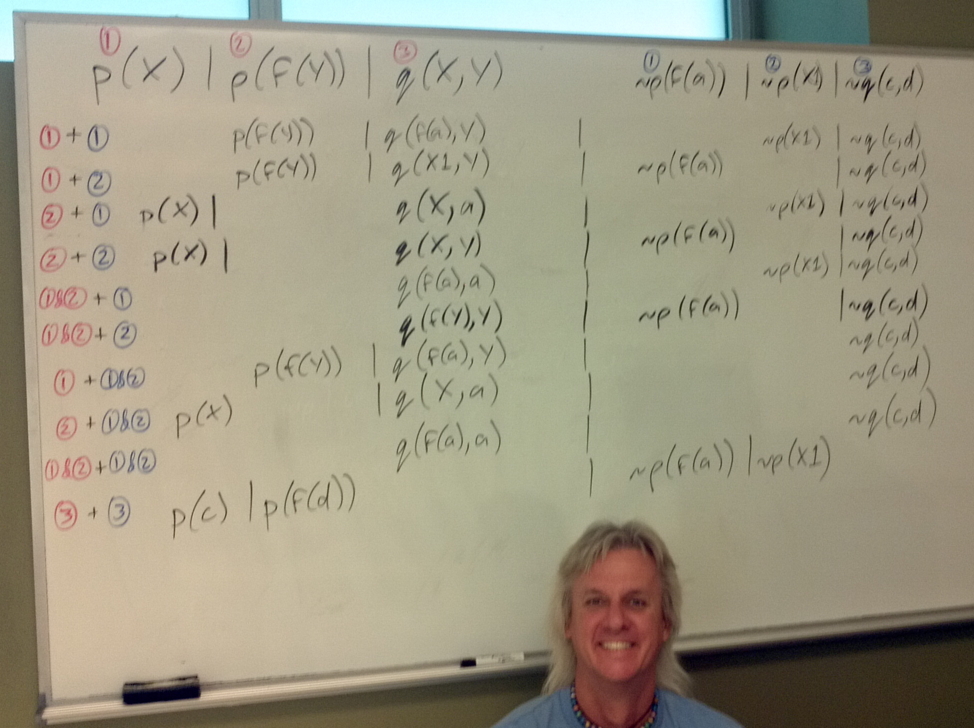 ① ② ③ ① ② ③
p(X) | p(F(Y)) | q(X,Y) ~p(F(a)) | ~p(X1) | ~q(c,d)
① + ① p(F(Y)) | q(F(a),Y) | ~p(X1) | ~q(c,d)
① + ② p(F(Y)) | q(X1,Y) | ~p(F(a)) | ~q(c,d)
② + ① p(X) | q(X,a) | ~p(X1) | ~q(c,d)
② + ② p(X) | q(X,Y) | ~p(F(a)) | ~q(c,d)
①&② + ① q(F(a),a) | ~p(X1) | ~q(c,d)
①&② + ② q(F(Y),Y) | ~p(F(a)) | ~q(c,d)
① + ①&② p(F(Y)) | q(F(a),Y) | ~q(c,d)
② + ①&② p(X) | q(X,a) | ~q(c,d)
①&② + ①&② q(F(a),a) | ~q(c,d)
③ + ③ p(c) | p(F(d)) | ~p(F(a)) | ~p(X1)